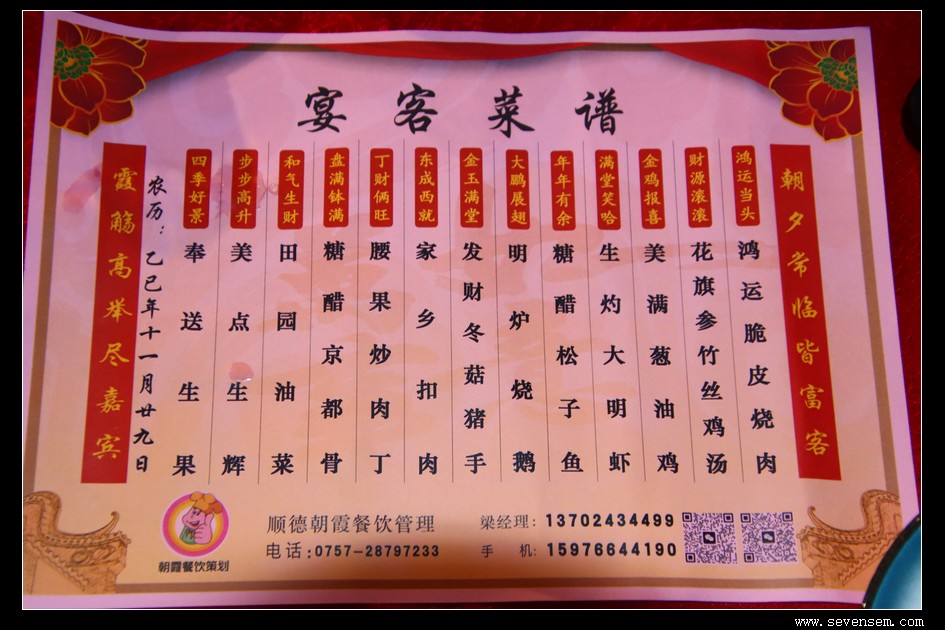 宴客菜谱
朝夕常临皆富客
鸿运当头
鸿运脆皮烧肉
财源滚滚
花旗参竹丝鸡汤
金鸡报喜
美满葱油鸡
满堂笑哈
生灼大明虾
年年有余
糖醋松子鱼
大鹏展翅
明炉烧鹅
金玉满堂
发财冬菇猪手
东成西就
家乡扣肉
丁财俩旺
腰果炒肉丁
盘满钵满
糖醋京都骨
和气生财
田园油菜
步步高升
美点生辉
四季好景
奉送生果
农历：乙巳年十一月廿九日
霞觞高举尽嘉宾
朝霞餐饮策划
顺德朝霞餐饮管理
电话:0757-28797233
梁经理：13702434499
手机：15976644190
www.sevensem.com